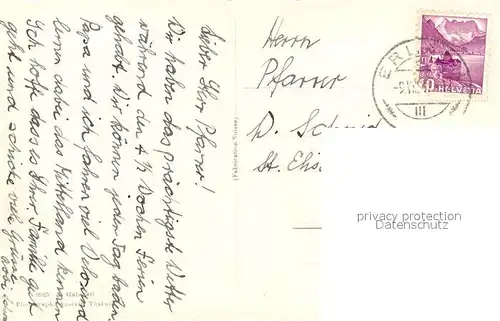 Lieber Herr Pfarrer!
Wir haben das prächtigste Wetter
während den 4½ Wochen Ferien
gehabt. Wir können jeden Tag baden.
Papa und ich fahren viel Velo und
lernen dabei das Hinterland kennen.
Ich hoffe dass es Ihrer Familie gut
geht und schicke viele Grüsse
(Fabrication Suisse)
Herrn
Pfarrer
D. Schmid
St. Elis
HELVETIA
III
privacy protection
Datenschutz